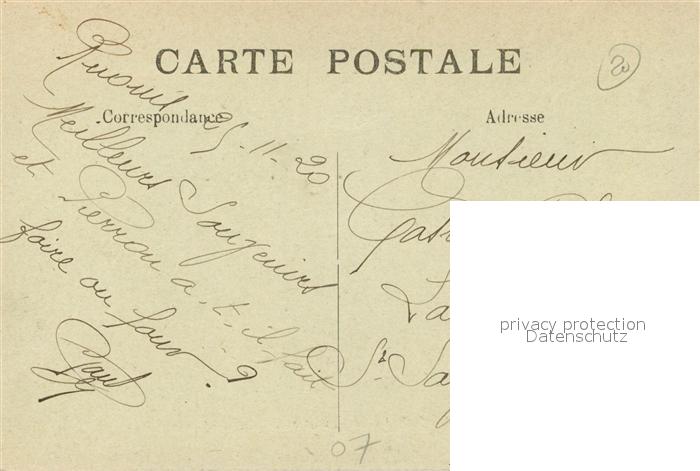 CARTE POSTALE
20
Correspondance
Adresse
25-11-20
Meilleurs Souvenirs
et Pierrou a-t-il fait
faire au four ?
Paul
Monsieur
La
St Sa
privacy protection
Datenschutz
07